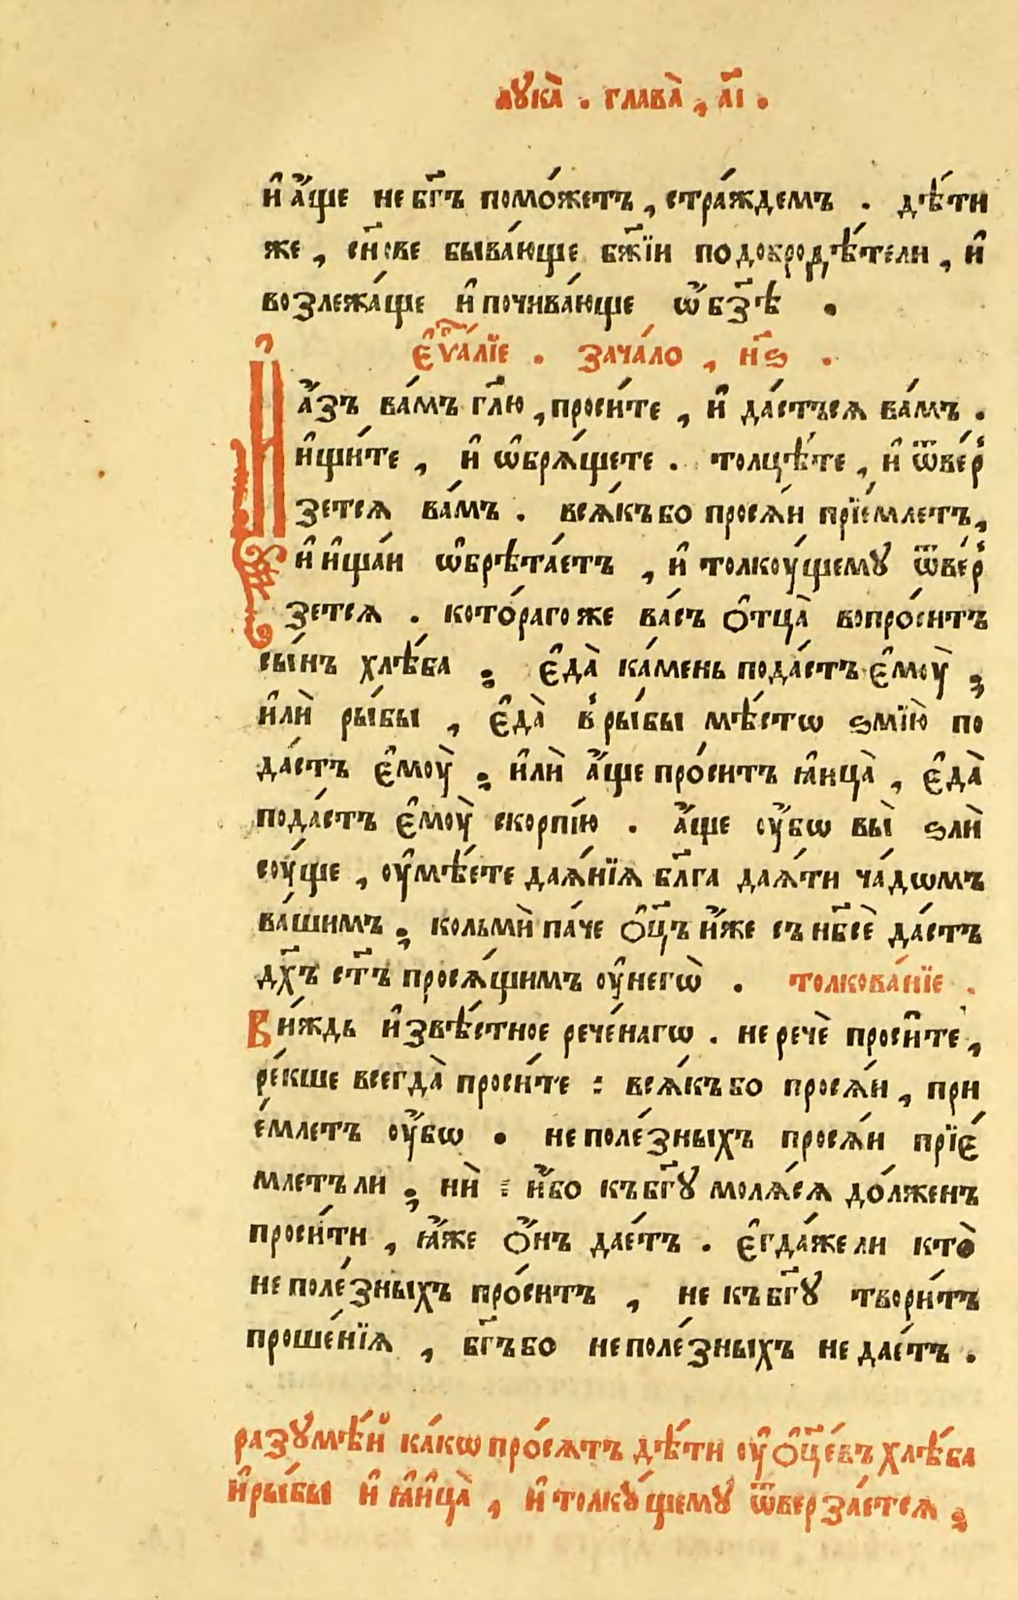 лꙋка̀ . глава̀ , а҃і .
и҆ а҆́ще не бг҃ъ помо́жетъ , стра́ждемъ . дѣ́ти
же , сн҃ове быва́юще бж҃їи по доброд̾ѣ́тели , и҆
возлежа́ще и҆ почива́юще ѡ҆ бз҃ѣ .
є҆ѵⷢ҇а́лїе . зача́ло , н҃ѕ .
И҆ а҆́зъ ва́мъ гл҃ю , проси́те , и҆ да́стъся ва́мъ .
и҆щи́те , и҆ ѡ҆бря́щете . толцѣ́те , и҆ ѿве́р
зетсѧ ва́мъ . всѧ́къ бо просѧ́и прїе́млетъ ,
и҆ и҆ща́и ѡ҆брѣта́етъ , и҆ толкоу́щемꙋ ѿве́р
зетсѧ . кото́раго же ва́съ ѻ҆тца̀ вопро́ситъ
сы́нъ хлѣ́ба ; є҆да̀ ка́мень пода́стъ є҆моу̀ ;
и҆лѝ ры́бы , є҆да̀ в̾ ры́бы мѣ́стѡ ѕмїю̀ по
да́стъ є҆моу̀ ; и҆лѝ а҆́ще про́ситъ ꙗ҆ица̀ , є҆да̀
пода́стъ є҆моу̀ скорпі́ю . а҆́ще оу҆́бѡ вы̀ ѕлѝ
соу́ще , оу҆мѣ́ете даѧ́нїѧ бл҃га даѧ́ти ча́дѡмъ
ва́шимъ ; кольмѝ па́че ѻ҆ц҃ъ и҆́же съ нб҃сѐ да́стъ
дх҃ъ ст҃ъ просѧ́щимъ оу҆ негѡ̀ . толкова́нїе .
Ви́ждь и҆звѣ́стное рече́нагѡ . не речѐ проси̑те ,
ре́кше всегда̀ проси́те : всѧ́къ бо просѧ́и , прї
е́млетъ оу҆́бѡ . не поле́зныхъ просѧ́и прїе́
млетъ ли ; нѝ : и҆́бо къ бг҃ꙋ молѧ́йсѧ до́лженъ
проси́ти , ꙗ҆́же ѻ҆́нъ дае́тъ . є҆гда́же ли кто̀
не поле́зныхъ про́ситъ , не къ бг҃ꙋ твори́тъ
проше́нїѧ , бг҃ъ бо не поле́зныхъ не дае́тъ .
разꙋмѣ́и҆ ка́кѡ про́сѧтъ дѣ́ти оу҆ ѻ҆ц҃е́въ хлѣ́ба
и҆ ры́бы и҆ ꙗ҆и҆ца̀ , и҆ толкꙋ́щемꙋ ѿверза́етсѧ ;